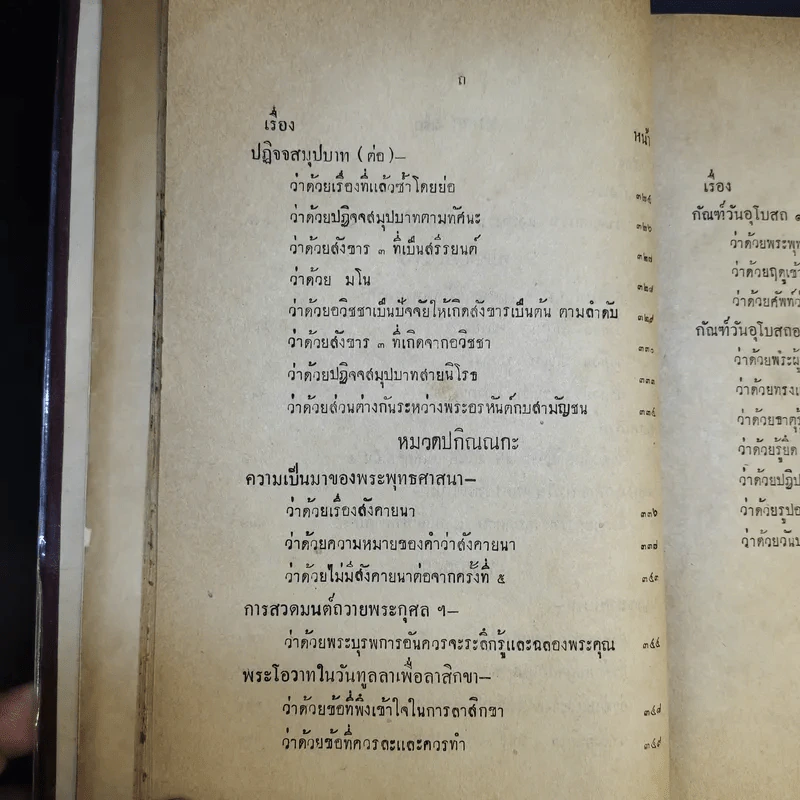 ถ
เรื่อง หน้า
ปฏิจจสมุปบาท (ต่อ)—
ว่าด้วยเรื่องที่แล้วซ้ำโดยย่อ
ว่าด้วยปฏิจจสมุปบาทตามทัศนะ ๓๒๖
ว่าด้วยสังขาร ๓ ที่เป็นสรีรยนต์ ๓๒๗
ว่าด้วย มโน ๓๒๘
ว่าด้วยอวิชชาเป็นปัจจัยให้เกิดสังขารเป็นต้น ตามลำดับ ๓๒๙
ว่าด้วยสังขาร ๓ ที่เกิดจากอวิชชา ๓๓๐
ว่าด้วยปฏิจจสมุปบาทสายนิโรธ ๓๓๓
ว่าด้วยส่วนต่างกันระหว่างพระอรหันต์กับสามัญชน
หมวดปกิณณกะ
ความเป็นมาของพระพุทธศาสนา—
ว่าด้วยเรื่องสังคายนา ๓๓๖
ว่าด้วยความหมายของคำว่าสังคายนา ๓๓๗
ว่าด้วยไม่มีสังคายนาต่อจากครั้งที่ ๕
การสวดมนต์ถวายพระกุศล ฯ—
ว่าด้วยพระบุรพการอันควรจะระลึกรู้และฉลองพระคุณ
พระโอวาทในวันทูลลาเพื่อลาสิกขา—
ว่าด้วยข้อที่พึงเข้าใจในการลาสิกขา
ว่าด้วยข้อที่ควรละและควรทำ
เรื่อง
กัณฑ์วันอุโบสถ ๑
ว่าด้วยพระพุท
ว่าด้วยฤดูเข้า
ว่าด้วยศัพท์ว่
กัณฑ์วันอุโบสถอ
ว่าด้วยพระผู้
ว่าด้วยทรงเ
ว่าด้วยธาตุรู้
ว่าด้วยรู้ยึด
ว่าด้วยปฏิป
ว่าด้วยรูปอ
ว่าด้วยวันม